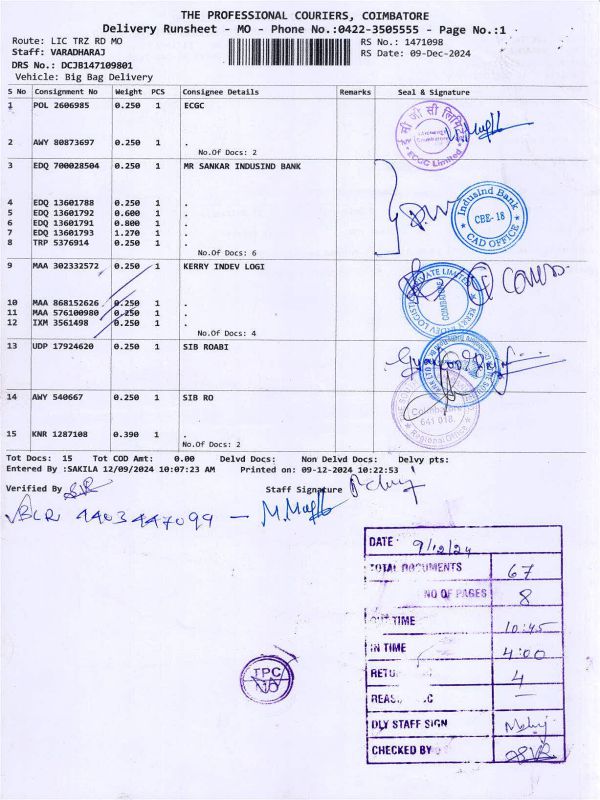 THE PROFESSIONAL COURIERS, COIMBATORE
Delivery Runsheet - MO - Phone No.:0422-3505555 - Page No.:1
Route: LIC TRZ RD MO RS No.: 1471098
Staff: VARADHARAJ RS Date: 09-Dec-2024
DRS No.: DCJB147109801
Vehicle: Big Bag Delivery
S No Consignment No Weight PCS Consignee Details Remarks Seal & Signature
1 POL 2606985 0.250 1 ECGC
ई सी जी सी लिमि
Coimbatore
ECGC Limited
2 AWY 80873697 0.250 1 .
No.Of Docs: 2
3 EDQ 700028504 0.250 1 MR SANKAR INDUSIND BANK
IndusInd Bank
CBE-18
CAD OFFICE
4 EDQ 13601788 0.250 1 .
5 EDQ 13601792 0.600 1 .
6 EDQ 13601791 0.800 1 .
7 EDQ 13601793 1.270 1 .
8 TRP 5376914 0.250 1 .
No.Of Docs: 6
9 MAA 302332572 0.250 1 KERRY INDEV LOGI
KERRY INDEV LOGISTICS PRIVATE LIMITED
COIMBATORE
10 MAA 868152626 0.250 1 .
11 MAA 576100980 0.250 1 .
12 IXM 3561498 0.250 1 .
No.Of Docs: 4
13 UDP 17924620 0.250 1 SIB ROABI
14 AWY 540667 0.250 1 SIB RO
Coimbatore
641 018
Regional Office
15 KNR 1287108 0.390 1 .
No.Of Docs: 2
Tot Docs: 15 Tot COD Amt: 0.00 Delvd Docs: Non Delvd Docs: Delvy pts:
Entered By :SAKILA 12/09/2024 10:07:23 AM Printed on: 09-12-2024 10:22:53
Verified By Staff Signature
BLR 4403447099 —
DATE: 9/12/24
TOTAL DOCUMENTS 67
NO OF PAGES 8
OUT TIME 10:45
IN TIME 4:00
RETU 4
REAS C —
DLY STAFF SIGN
CHECKED BY
TPC